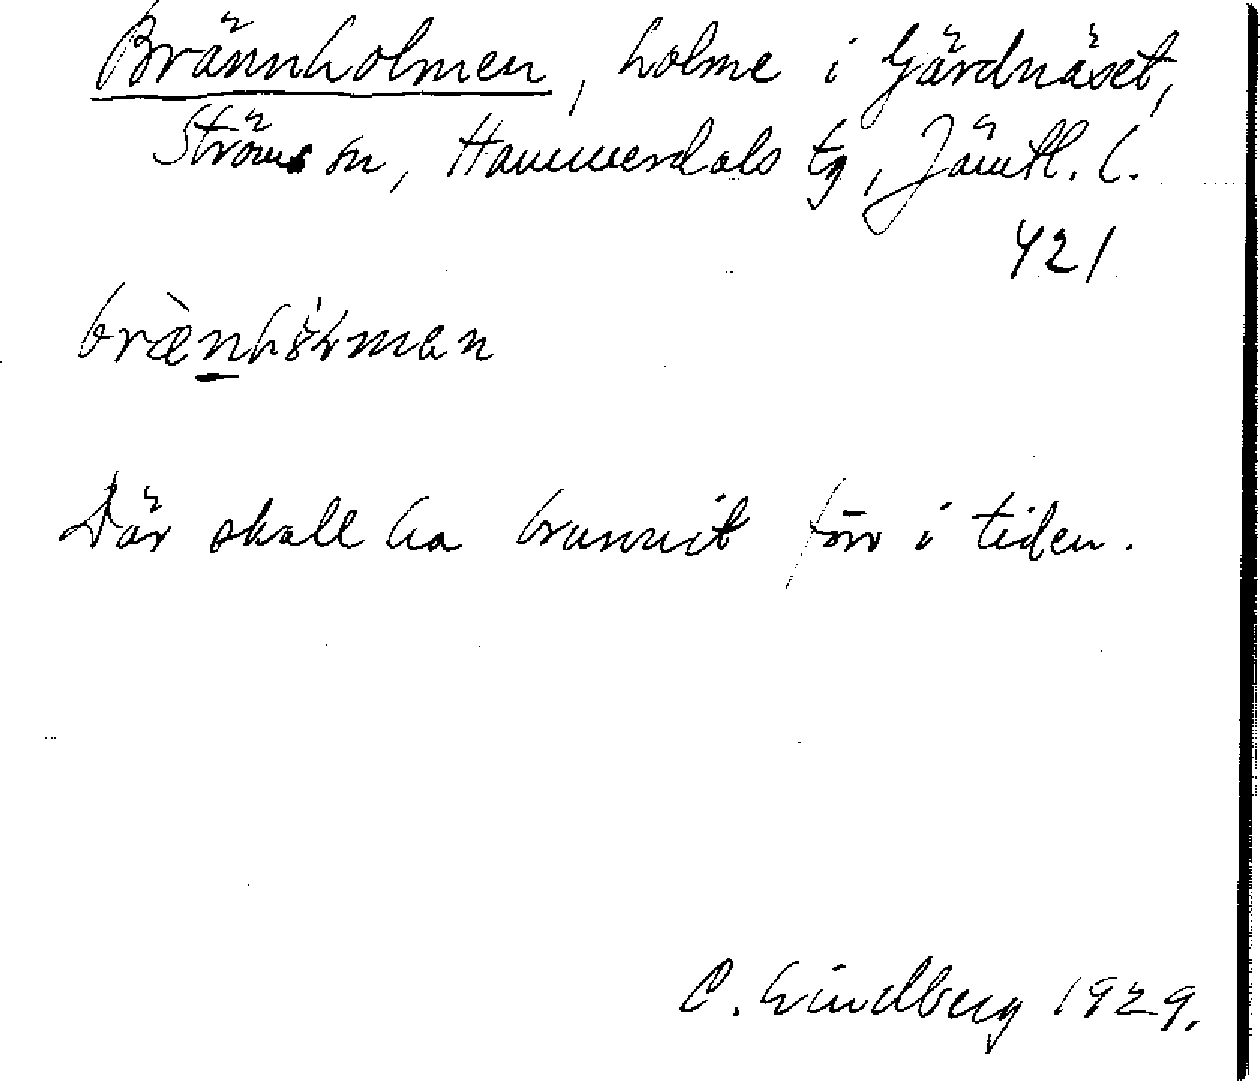 Brännholmen, holme i Gärdnäset,
Ströms sn, Hammerdals tg, Jämtl. l.
421
Där skall ha brunnit förr i tiden.
C. Lindberg 1929.